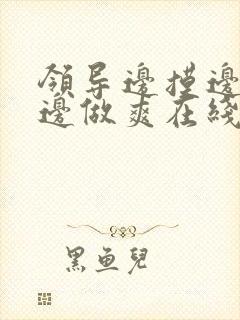 領导邊摸邊
邊做爽在綫
黑鱼兒